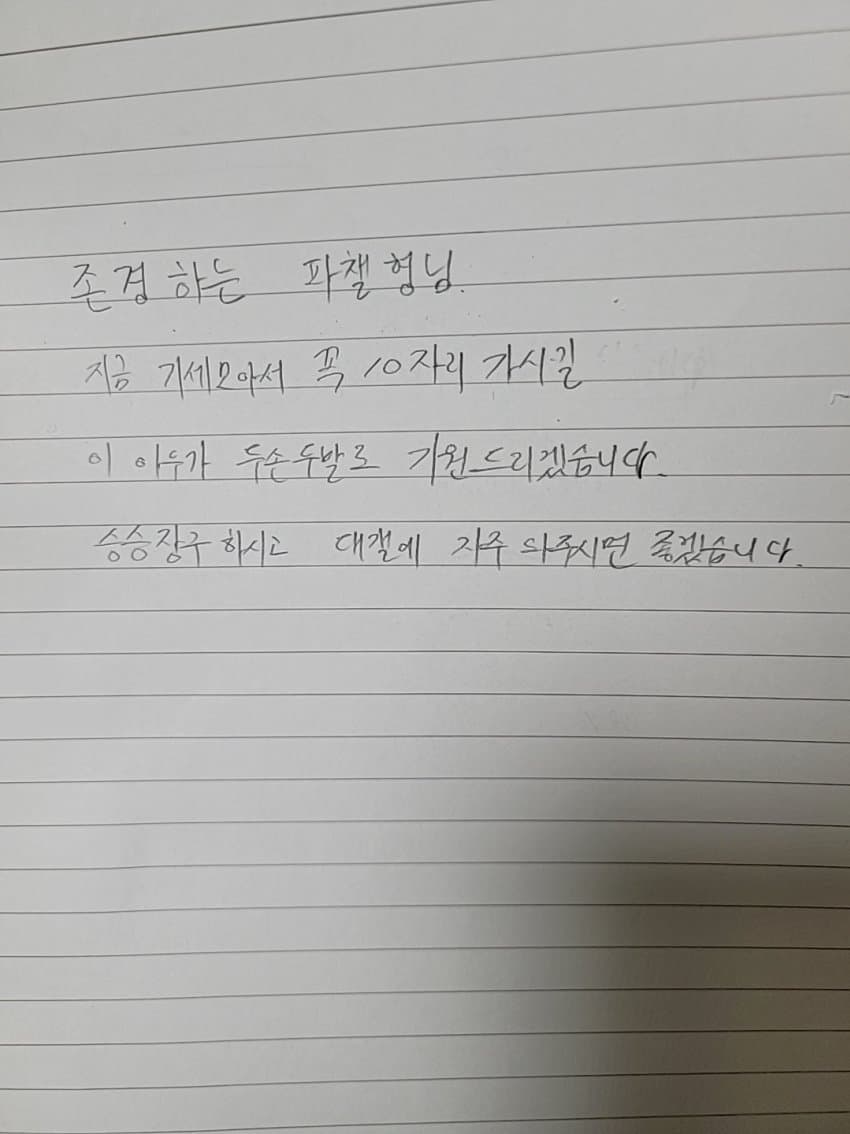 존경하는 파챌형님.
지금 기세모아서 꼭 10자리 가시길
이 아우가 두손두발로 기원드리겠습니다.
승승장구하시고 대갤에 자주 와주시면 좋겠습니다.